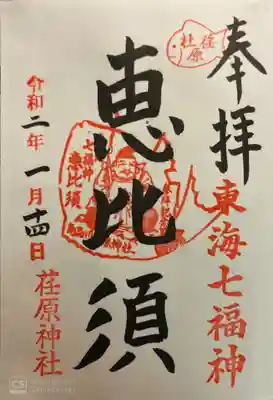 奉拝
東海七福神
荏原
社
恵比須
七福神
恵比須
令和二年一月十四日
荏原神社
CS